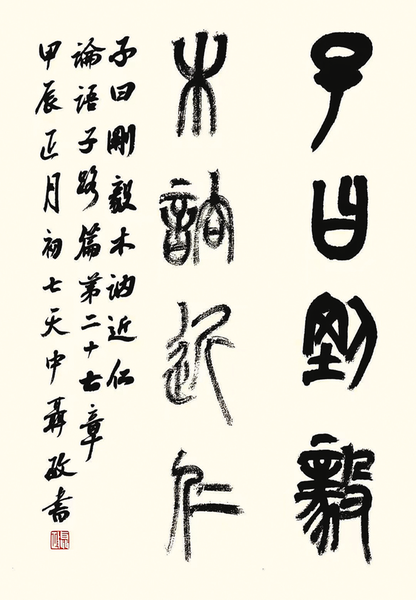 子曰剛毅
木訥近仁
子曰剛毅木訥近仁
論語子路篇第二十七章
甲辰正月初七天中聶書